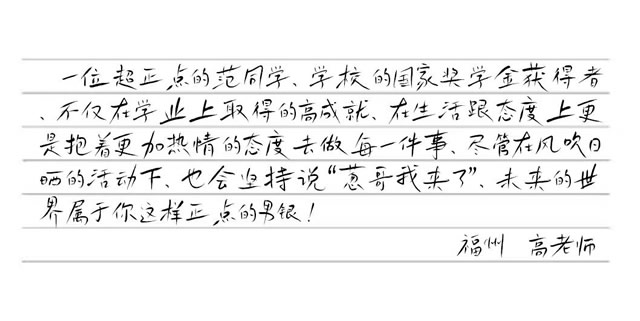 一位超正点的范同学、学校的国家奖学金获得者
、不仅在学业上取得的高成就、在生活跟态度上更
是抱着更加热情的态度去做每一件事、尽管在风吹日
晒的活动下、也会坚持说“葱哥我来了”、未来的世
界属于你这样正点的男银！
福州 高老师